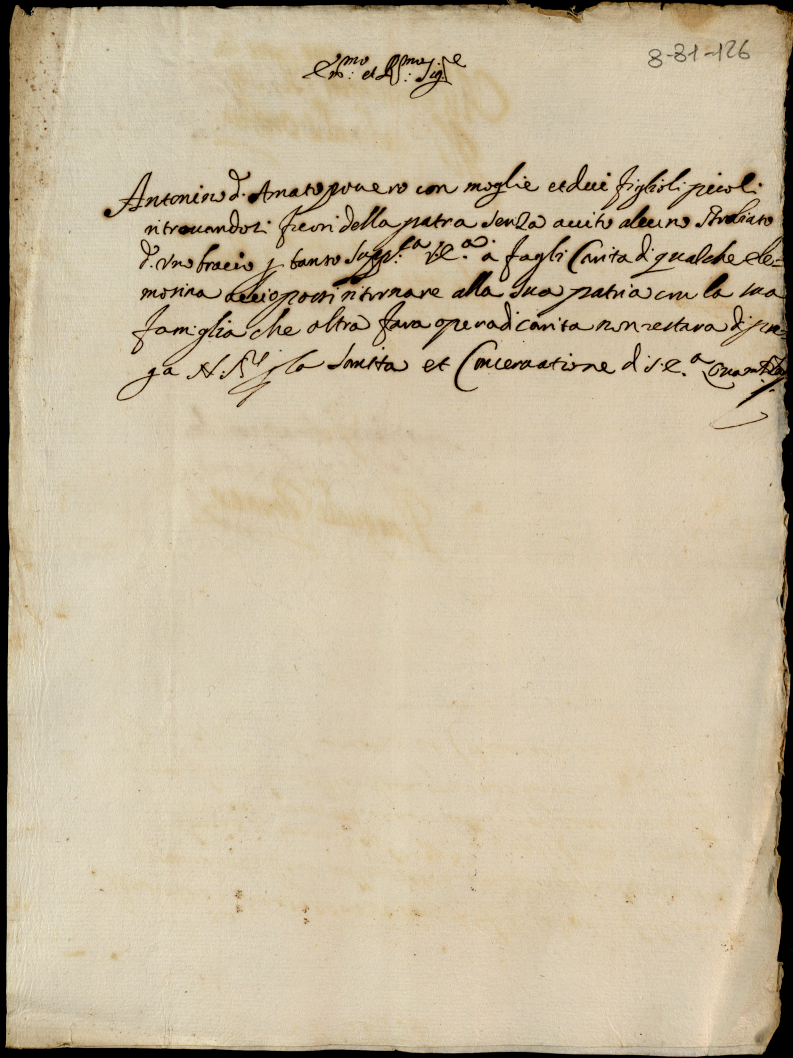 8-81-126
Em.mo et R.mo Sig.re
Antonino d. Amato povero con moglie et dui figlioli picoli
ritrovandosi fuori della patra senza aiuto alcuno stroliato
d. uno bracio p tanto supp.ca V.E.a à fagli Carita di qualche ele=
mosina accio possi ritornare alla sua patria con la sua
famiglia che oltra fara opera di carita non restara di pre=
ga N. S.re p la sanitta et Conservatione di S.E.a